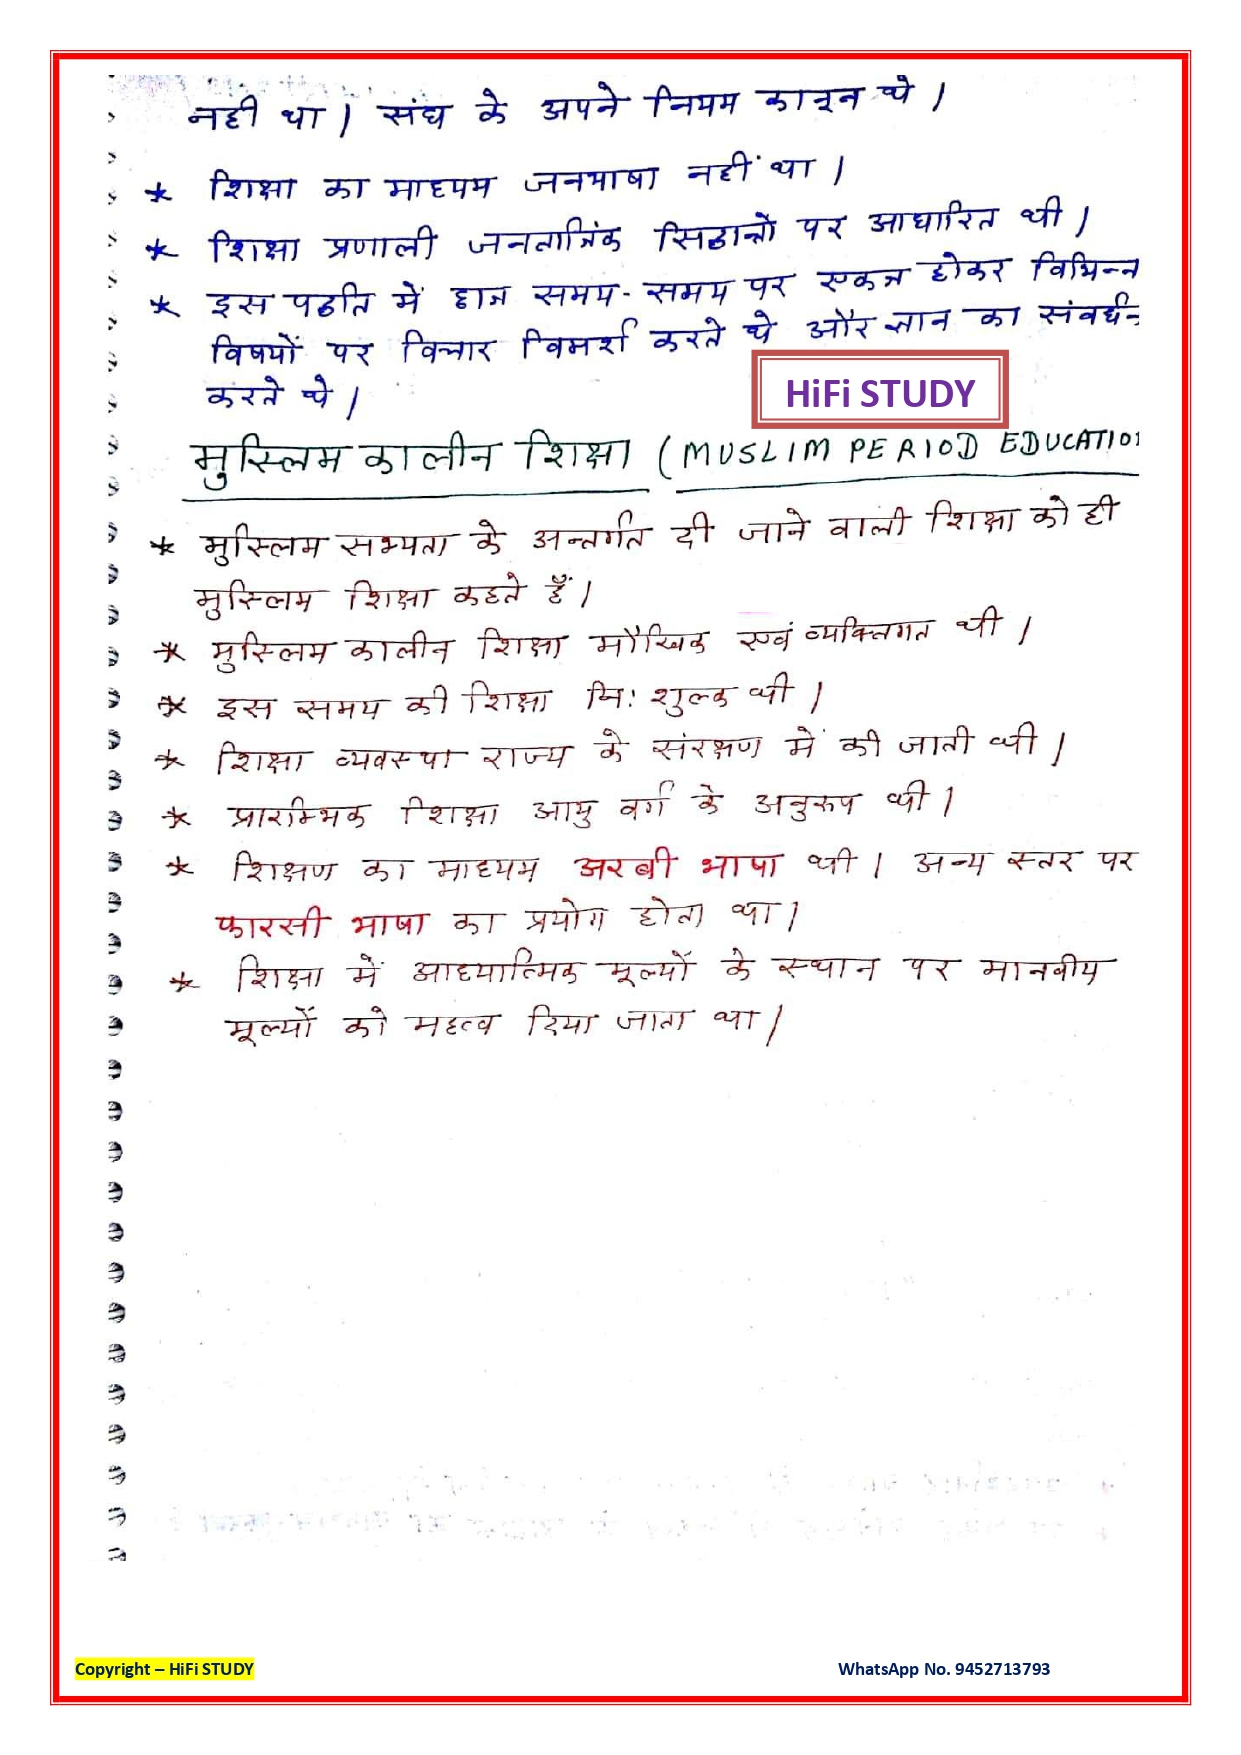 नहीं था। संघ के अपने नियम कानून थे।
* शिक्षा का माध्यम जनभाषा नहीं था।
* शिक्षा प्रणाली जनतांत्रिक सिद्धान्तों पर आधारित थी।
* इस पद्धति में छात्र समय-समय पर एकत्र होकर विभिन्न
विषयों पर विचार विमर्श करते थे और ज्ञान का संवर्धन
करते थे।
HiFi STUDY
मुस्लिम कालीन शिक्षा (MUSLIM PERIOD EDUCATION
* मुस्लिम सभ्यता के अन्तर्गत दी जाने वाली शिक्षा को ही
मुस्लिम शिक्षा कहते हैं।
* मुस्लिम कालीन शिक्षा मौखिक एवं व्यक्तिगत थी।
* इस समय की शिक्षा नि: शुल्क थी।
* शिक्षा व्यवस्था राज्य के संरक्षण में की जाती थी।
* प्रारम्भिक शिक्षा आयु वर्ग के अनुरूप थी।
* शिक्षण का माध्यम अरबी भाषा थी। अन्य स्तर पर
फारसी भाषा का प्रयोग होता था।
* शिक्षा में आध्यात्मिक मूल्यों के स्थान पर मानवीय
मूल्यों को महत्व दिया जाता था।
Copyright – HiFi STUDY
WhatsApp No. 9452713793